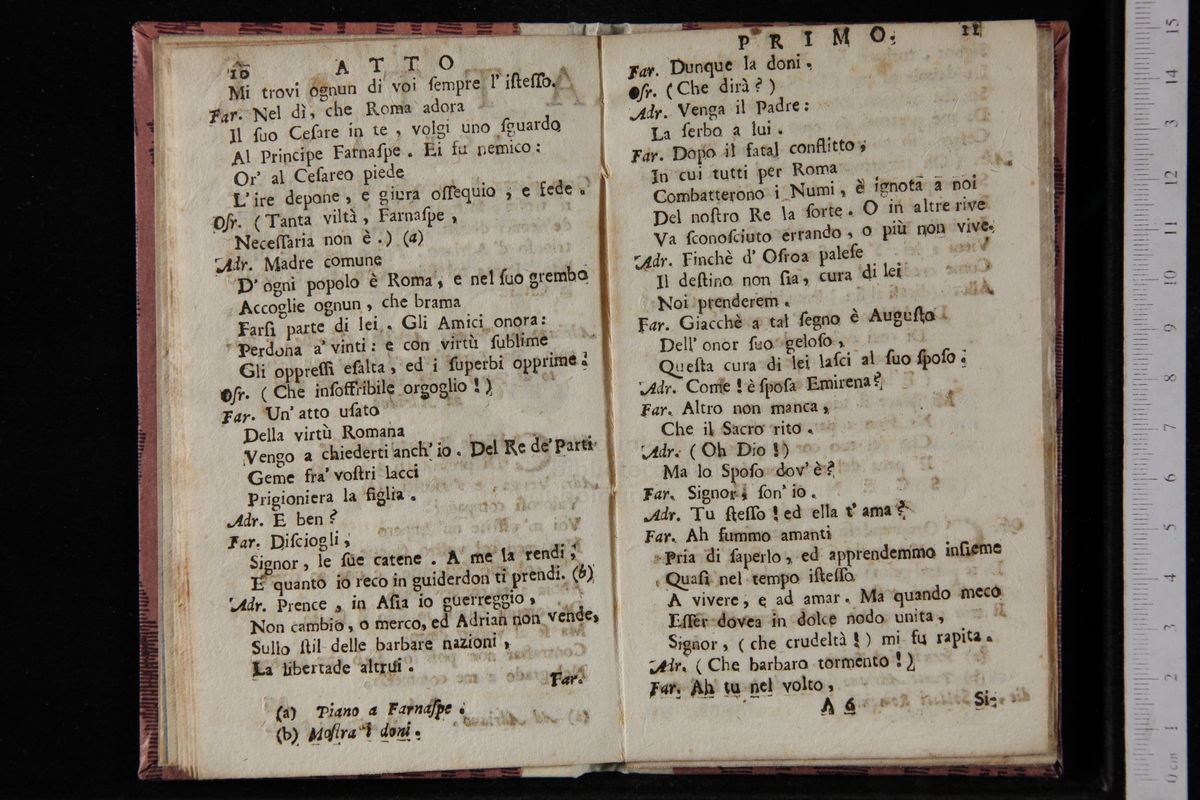 10 ATTO
Mi trovi ognun di voi ſempre l' iſteſſo.
Far. Nel dì, che Roma adora
Il ſuo Ceſare in te, volgi uno ſguardo
Al Principe Farnaſpe. Ei fu nemico:
Or' al Ceſareo piede
L'ire depone, e giura oſſequio, e fede.
Oſr. (Tanta viltà, Farnaſpe,
Neceſſaria non è.) (a)
Adr. Madre comune
D' ogni popolo è Roma, e nel ſuo grembo
Accoglie ognun, che brama
Farſi parte di lei. Gli Amici onora:
Perdona a' vinti: e con virtù ſublime
Gli oppreſſi eſalta, ed i ſuperbi opprime.
Oſr. (Che inſoffribile orgoglio!)
Far. Un' atto uſato
Della virtù Romana
Vengo a chiederti anch' io. Del Re de' Parti
Geme fra' voſtri lacci
Prigioniera la figlia.
Adr. E ben?
Far. Diſciogli,
Signor, le ſue catene. A me la rendi,
E quanto io reco in guiderdon ti prendi. (b)
Adr. Prence, in Aſia io guerreggio,
Non cambio, o merco, ed Adrian non vende,
Sullo ſtil delle barbare nazioni,
La libertade altrui.
Far.
(a) Piano a Farnaſpe.
(b) Moſtra i doni.
PRIMO. 11
Far. Dunque la doni.
Oſr. (Che dirà?)
Adr. Venga il Padre:
La ſerbo a lui.
Far. Dopo il fatal conflitto,
In cui tutti per Roma
Combatterono i Numi, è ignota a noi
Del noſtro Re la ſorte. O in altre rive
Va ſconoſciuto errando, o più non vive.
Adr. Finchè d' Oſroa paleſe
Il deſtino non ſia, cura di lei
Noi prenderem.
Far. Giacchè a tal ſegno è Auguſto
Dell' onor ſuo geloſo,
Queſta cura di lei laſci al ſuo ſpoſo.
Adr. Come! è ſpoſa Emirena?
Far. Altro non manca,
Che il Sacro rito.
Adr. (Oh Dio!)
Ma lo Spoſo dov' è?
Far. Signor, ſon' io.
Adr. Tu ſteſſo! ed ella t' ama?
Far. Ah fummo amanti
Pria di ſaperlo, ed apprendemmo inſieme
Quaſi nel tempo iſteſſo
A vivere, e ad amar. Ma quando meco
Eſſer dovea in dolce nodo unita,
Signor, (che crudeltà!) mi fu rapita.
Adr. (Che barbaro tormento!)
Far. Ah tu nel volto,
A 6 Si-